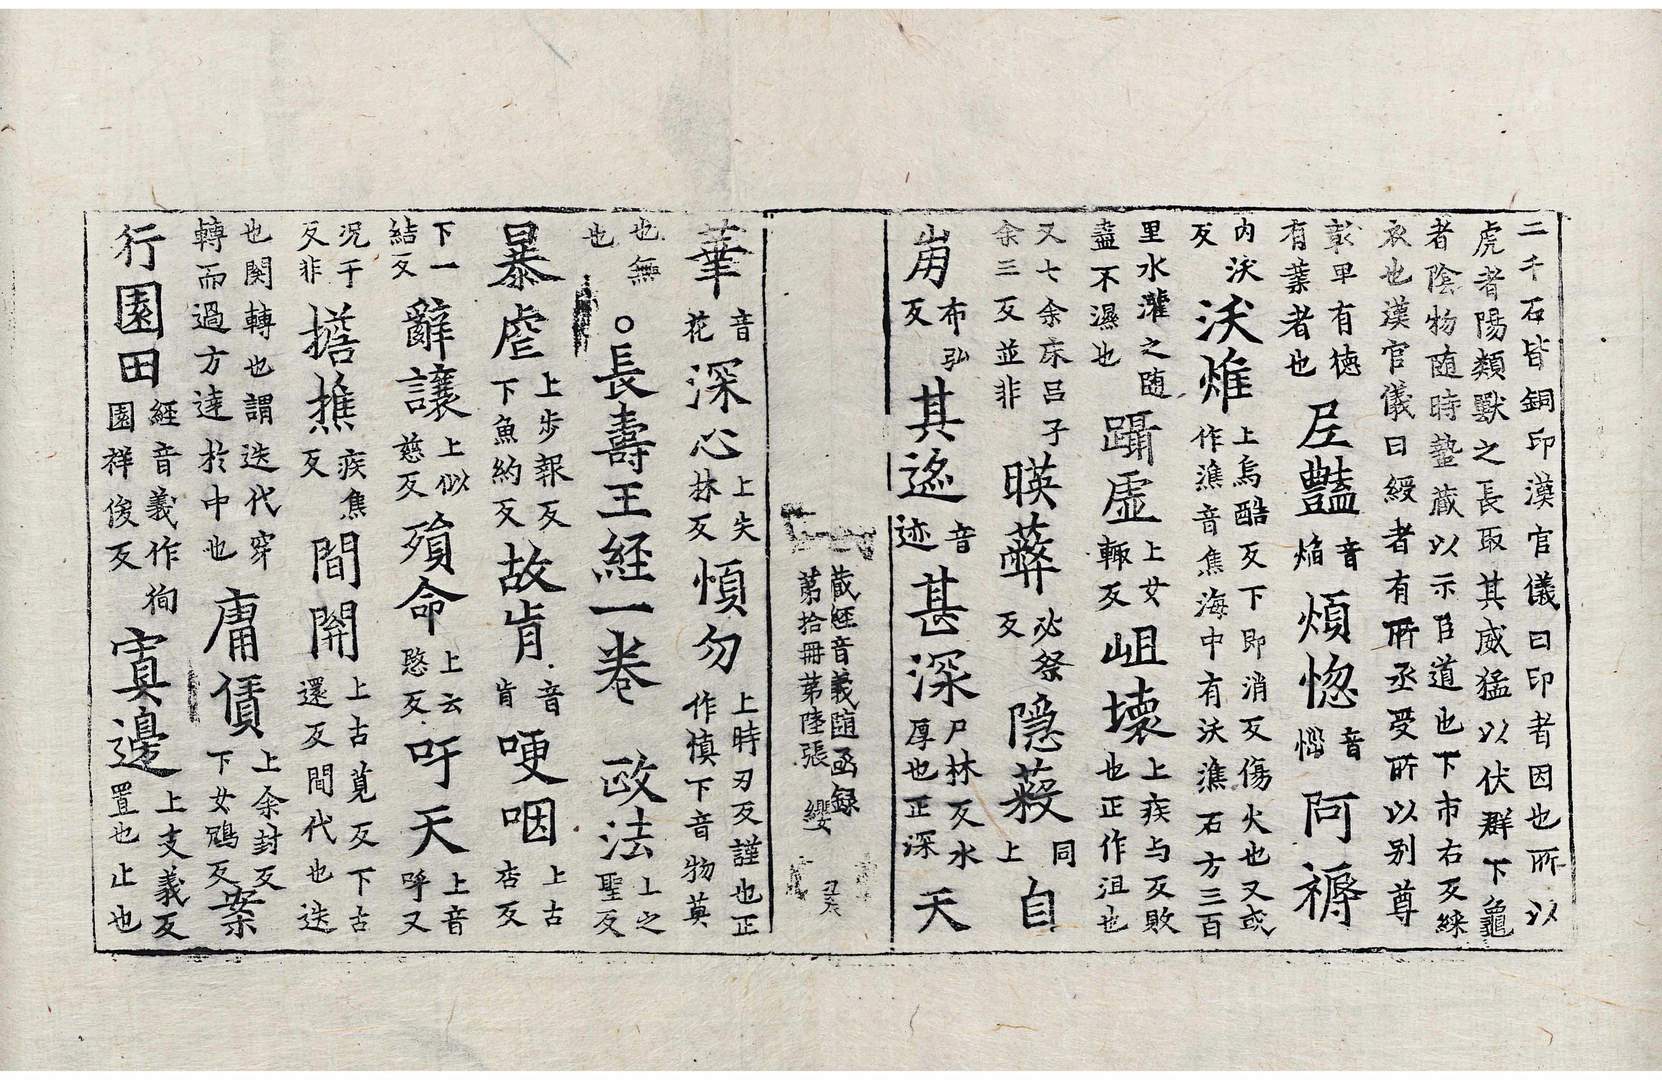 二千石皆銅印漢官儀曰印者因也所以
虎者陽類獸之長取其威猛以伏群下龜
者陰物随時蟄藏以示臣道也下市右反綵
也漢官儀曰綬者有所丞受所以别尊
卑有徳有葉者也 𡰱豔音焰 煩惚音 阿褥
内沃反 沃燋上烏酷反下即消反傷火也又或作潐音焦海中有沃潐石方三百
里水灌之随盡不濕也 躡虚上女輙反 岨壞上疾与反敗也正作沮也
又七余床吕子余三反並非 暎蔽必祭反 隱蔱同上 自
崩布弘反 其迹音迹 甚深尸林反水厚也正深 天
藏經音義随函録
第拾冊第陸張 纓
華音花 深心上失林反 慎勿上時刃反謹也正作慎下音物莫
也無也 ○長壽王經一卷 政法上之聖反
暴虐上步報反下魚約反 故肯音肯 哽咽上古杏反
下一結反 辭讓上似慈反 殞命上云愍反 吁天上音呼又
况于反非 㨪撨疾焦反 間關上古莧反下古還反間代也迭
也関轉也謂迭代穿轉而過方逹於中也 庸賃上余封反下女鴆反 案
行園田經音義作徇園祥俊反 寘邊上支義反置也止也